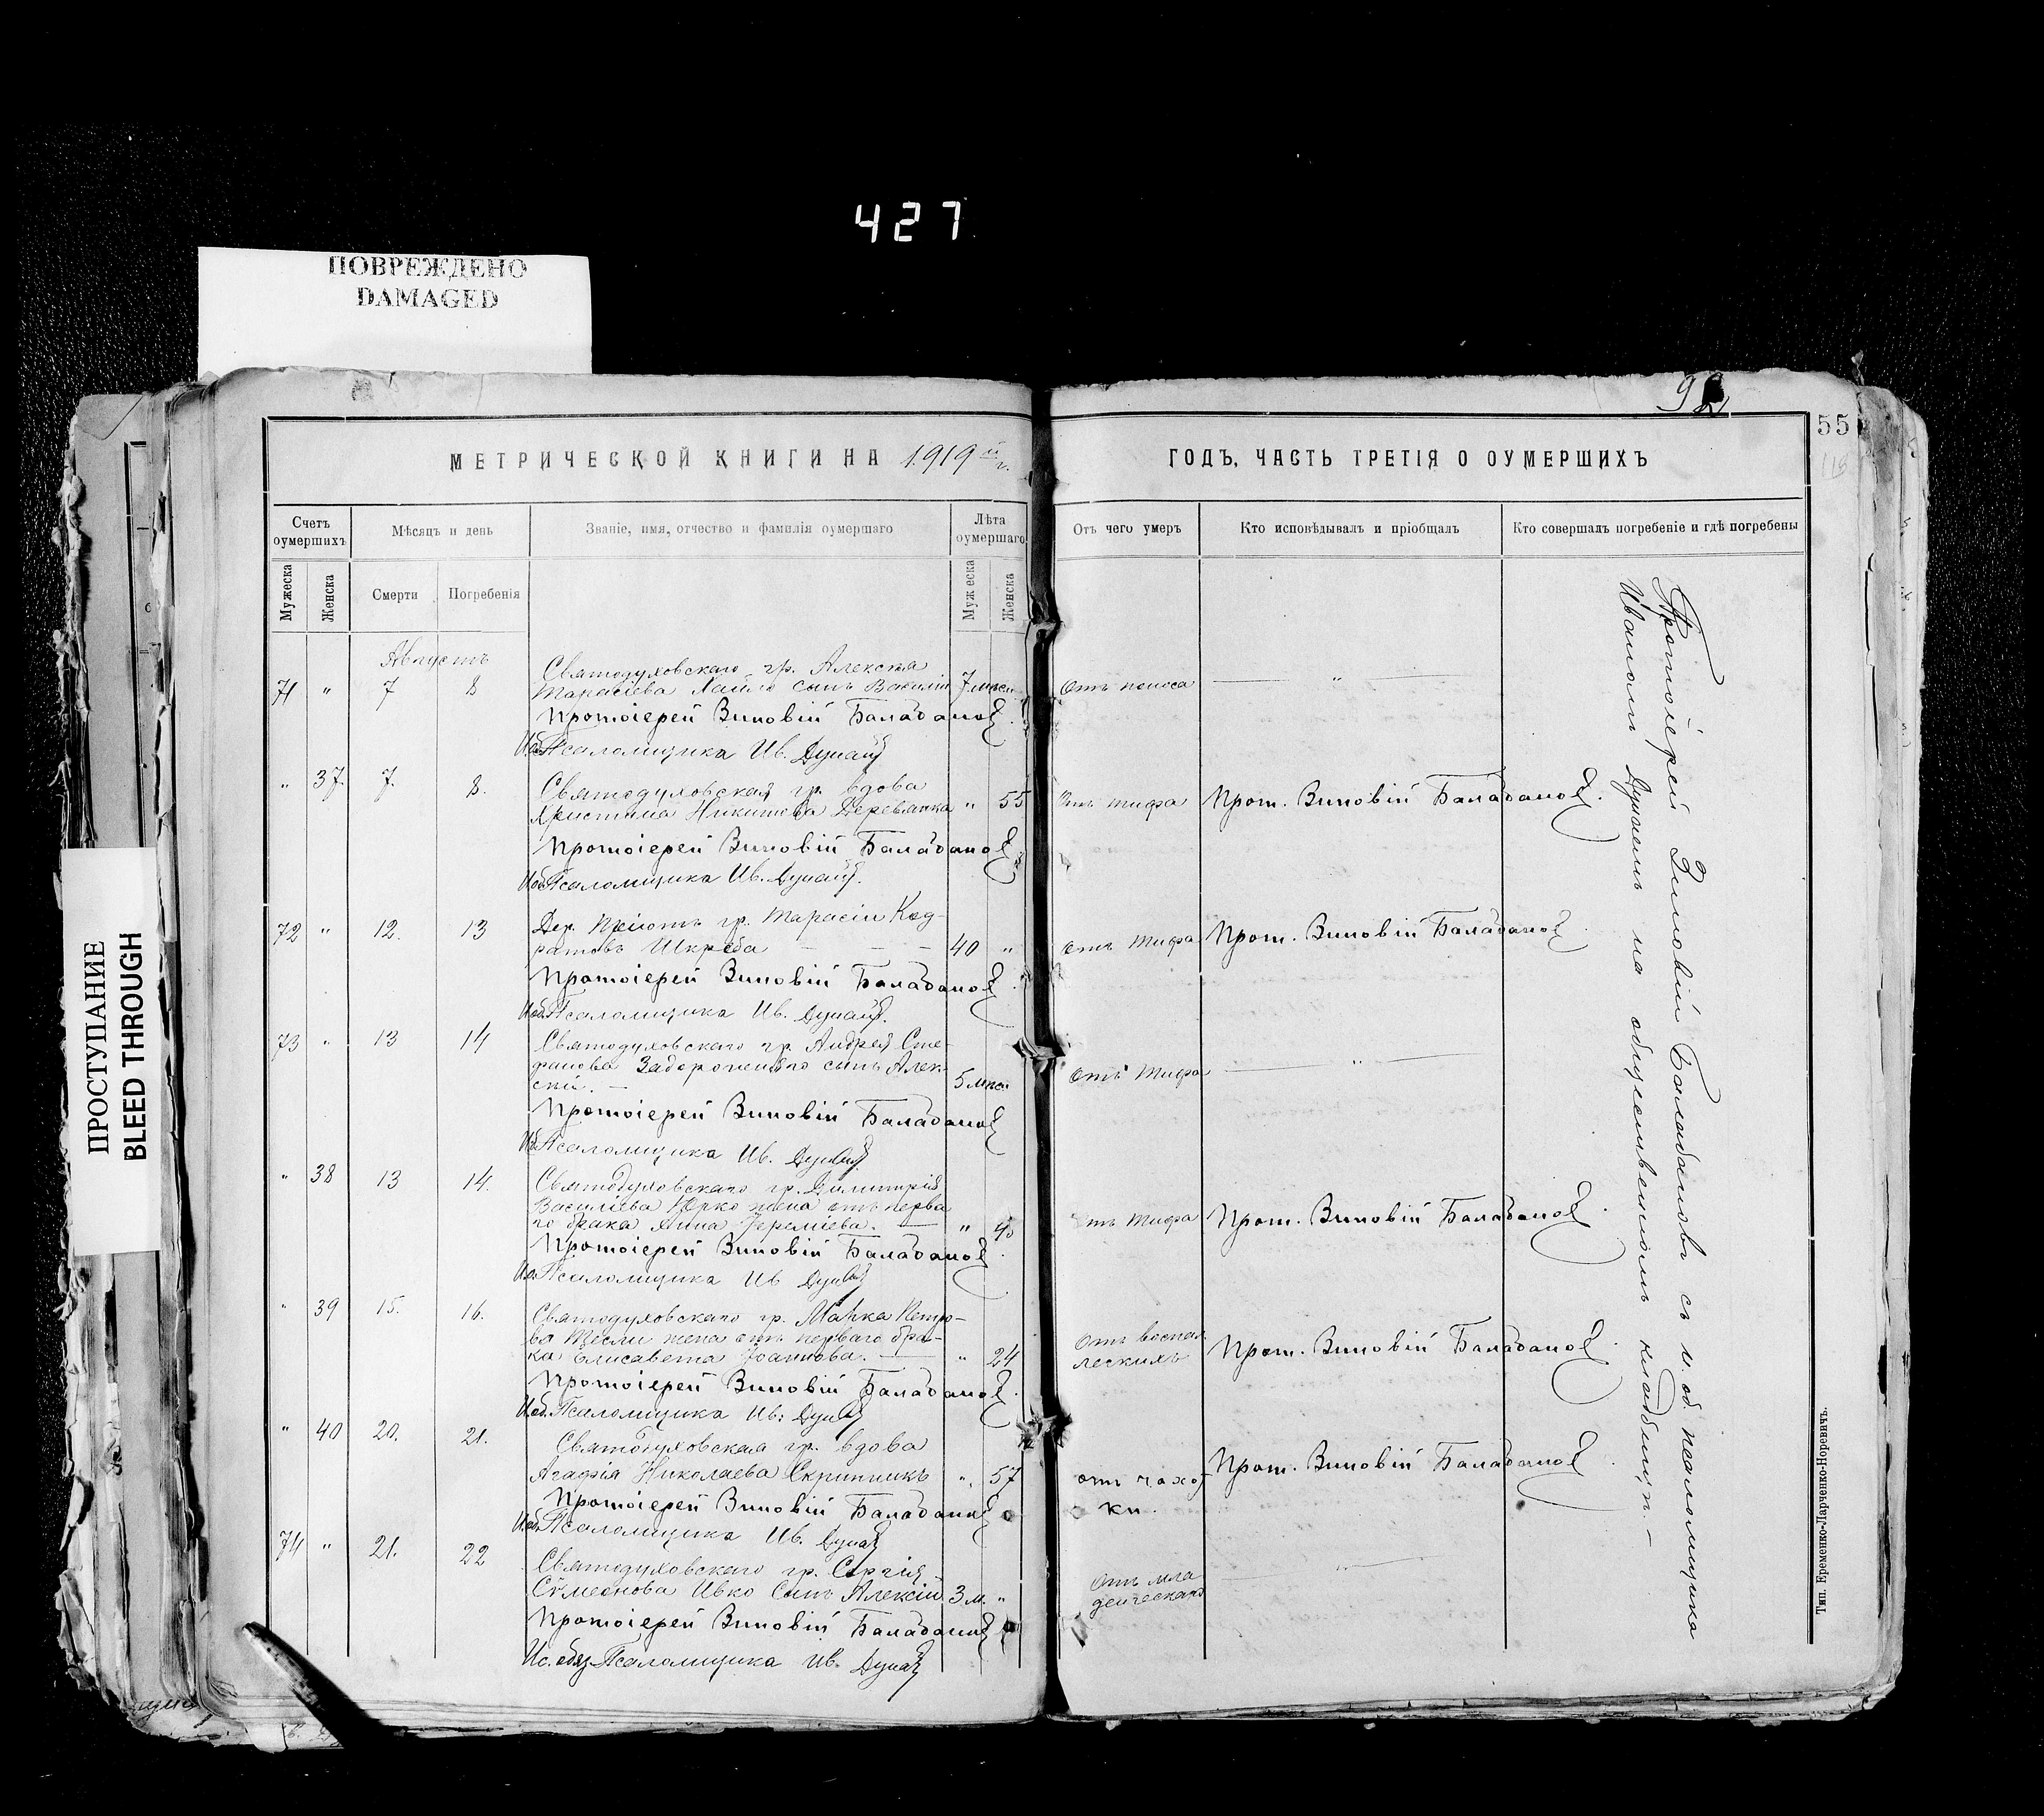 427
ПОВРЕЖДЕНО
DAMAGED
ПРОСТУПАНИЕ
BLEED THROUGH
55
МЕТРИЧЕСКОЙ КНИГИ НА 1919 й г.
ГОДЪ, ЧАСТЬ ТРЕТІЯ О ОУМЕРШИХЪ
Счетъ оумершихъ
Мѣсяцъ и день
Званіе, имя, отчество и фамилія оумершаго
Лѣта оумершаго
Отъ чего умеръ
Кто исповѣдывалъ и пріобщалъ
Кто совершалъ погребеніе и гдѣ погребены
Мужеска
Женска
Смерти
Погребенія
Мужеска
Женска
Августъ
Святодуховскаго гр. Алексѣя
71 " 7 8 Тарасіева сынъ Василій 7 мѣси Отъ поноса "
Протоіерей Зиновій Балабановъ
И об. Псаломщика Ив. Дунай
" 37. 7. 8. Святодуховская гр. вдова
Христина Никитова Деревянка " 55 Отъ тифа Прот. Зиновій Балабановъ
Протоіерей Зиновій Балабановъ
И об. Псаломщика Ив. Дунай.
72 " 12. 13 Дер. гр. Тарасій Код-
ратовъ Шкреба 40 " Отъ тифа Прот. Зиновій Балабановъ
Протоіерей Зиновій Балабановъ
И об. Псаломщика Ив. Дунай.
73 " 13 14 Святодуховскаго гр. Андрея Сте-
фанова Задорожняго сынъ Алек-
сій. 5 мѣси Отъ тифа "
Протоіерей Зиновій Балабановъ
И об. Псаломщика Ив. Дунай
" 38 13 14. Святодуховскаго гр. Димитрія
Василіева Юрко жена отъ перва
го брака Анна Іереміева. " Отъ тифа Прот. Зиновій Балабановъ
Протоіерей Зиновій Балабановъ
И об. Псаломщика Ив Дунай
" 39 15. 16. Святодуховскаго гр. Марка Петро-
ва Тесли жена отъ перваго бра-
ка Елисавета Іоаннова. " 24 Отъ воспал легкихъ Прот. Зиновій Балабановъ
Протоіерей Зиновій Балабановъ
И об. Псаломщика Ив. Дунай
" 40 20. 21. Святодуховская гр. вдова
Агафія Николаева Скринникъ " 57 отъ чахот ки. Прот. Зиновій Балабановъ
Протоіерей Зиновій Балабановъ
И об. Псаломщика Ив. Дунай
74 " 21. 22 Святодуховскаго гр. Сергія
Сѵмеонова Ивко сынъ Алексій 3 м. " Отъ мла денческаго
Протоіерей Зиновій Балабановъ
Ис. обяз. Псаломщика Ив. Дунай
Протоіерей Зиновій Балабановъ съ и. об псаломщика
Иваномъ Дунаемъ на общественномъ кладбищѣ.
Тип. Еременко-Ларченко-Норевичъ.